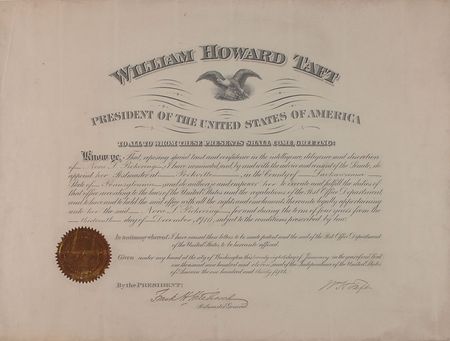 WILLIAM HOWARD TAFT
PRESIDENT OF THE UNITED STATES OF AMERICA
TO ALL TO WHOM THESE PRESENTS SHALL COME, GREETING:
Know ye, That, reposing special trust and confidence in the intelligence, diligence and discretion
of Nora L. Pickering, I have nominated, and, by and with the advice and consent of the Senate, do
appoint her Postmaster at Peckville, in the County of Lackawanna
State of Pennsylvania, and do authorize and empower her to execute and fulfil the duties of
that office according to the laws of the United States and the regulations of the Post Office Department,
and to have and to hold the said office, with all the rights and emoluments thereunto legally appertaining
unto her the said Nora L. Pickering, for and during the term of four years from the
day of December, 1910, subject to the conditions prescribed by law.
In testimony whereof, I have caused these letters to be made patent and the seal of the Post Office Department
of the United States to be hereunto affixed.
Given under my hand at the city of Washington this day of January, in the year of our Lord
one thousand nine hundred and eleven, and of the Independence of the United States
of America the one hundred and thirty fifth.
By the PRESIDENT:
Frank H. Hitchcock
Postmaster General
Wm H Taft